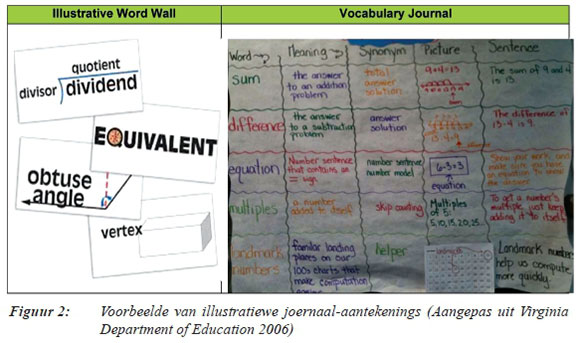 Illustrative Word Wall
Vocabulary Journal
quotient
divisor dividend
EQUIVALENT
obtuse
angle
vertex
Word Meaning Synonym Picture Sentence
sum
the answer
to an addition
problem
total
answer
solution
9+4=13
The sum of 9 and 4
is 13.
difference
the answer
to a subtraction
problem
answer
solution
13-4=9
The difference of
13-4 is 9.
equation
Number sentence
that contains an
= sign
number sentence
number model
6-3=3
equation
Show your work, and
make sure you have
an equation to show
the answer
multiples
a number
added to itself
skip counting
Multiples
of 5:
5,10,15,20,25
To get a number's
multiple, just keep
adding it to itself
landmark
numbers
familar landing
places on our
100s charts that
make computation
helper
Landmark number
help us compute
more quickly.
Figuur 2: Voorbeelde van illustratiewe joernaal-aantekenings (Aangepas uit Virginia
Department of Education 2006)